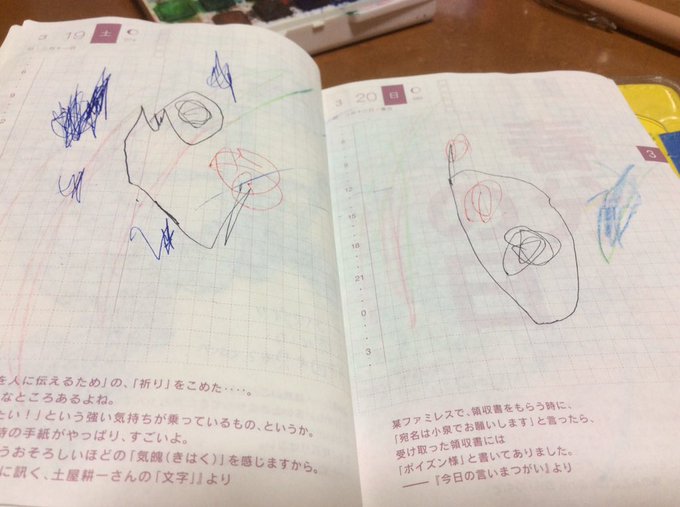 3 19 土
3 20 日
3
9
12
15
18
21
0
3
を人に伝えるため」の、「祈り」をこめた‥‥。
なところあるよね。
たい！」という強い気持ちが乗っているもの、というか。
時の手紙がやっぱり、すごいよ。
うおそろしいほどの「気魄(きはく)」を感じますから。
に訊く、土屋耕一さんの「文字」』より
某ファミレスで、領収書をもらう時に、
「宛名は小泉でお願いします」と言ったら、
受け取った領収書には
「ポイズン様」と書いてありました。
──『今日の言いまつがい』より